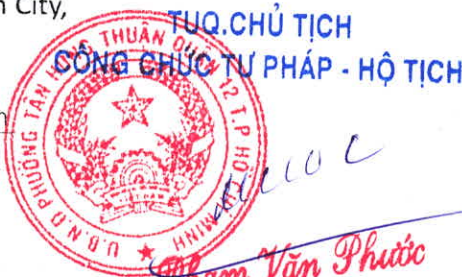 City,
TUQ.CHỦ TỊCH
CÔNG CHỨC TƯ PHÁP - HỘ TỊCH
U.B.N.D PHƯỜNG TÂN THUẬN 12 T.P HỒ MINH
Văn Phước